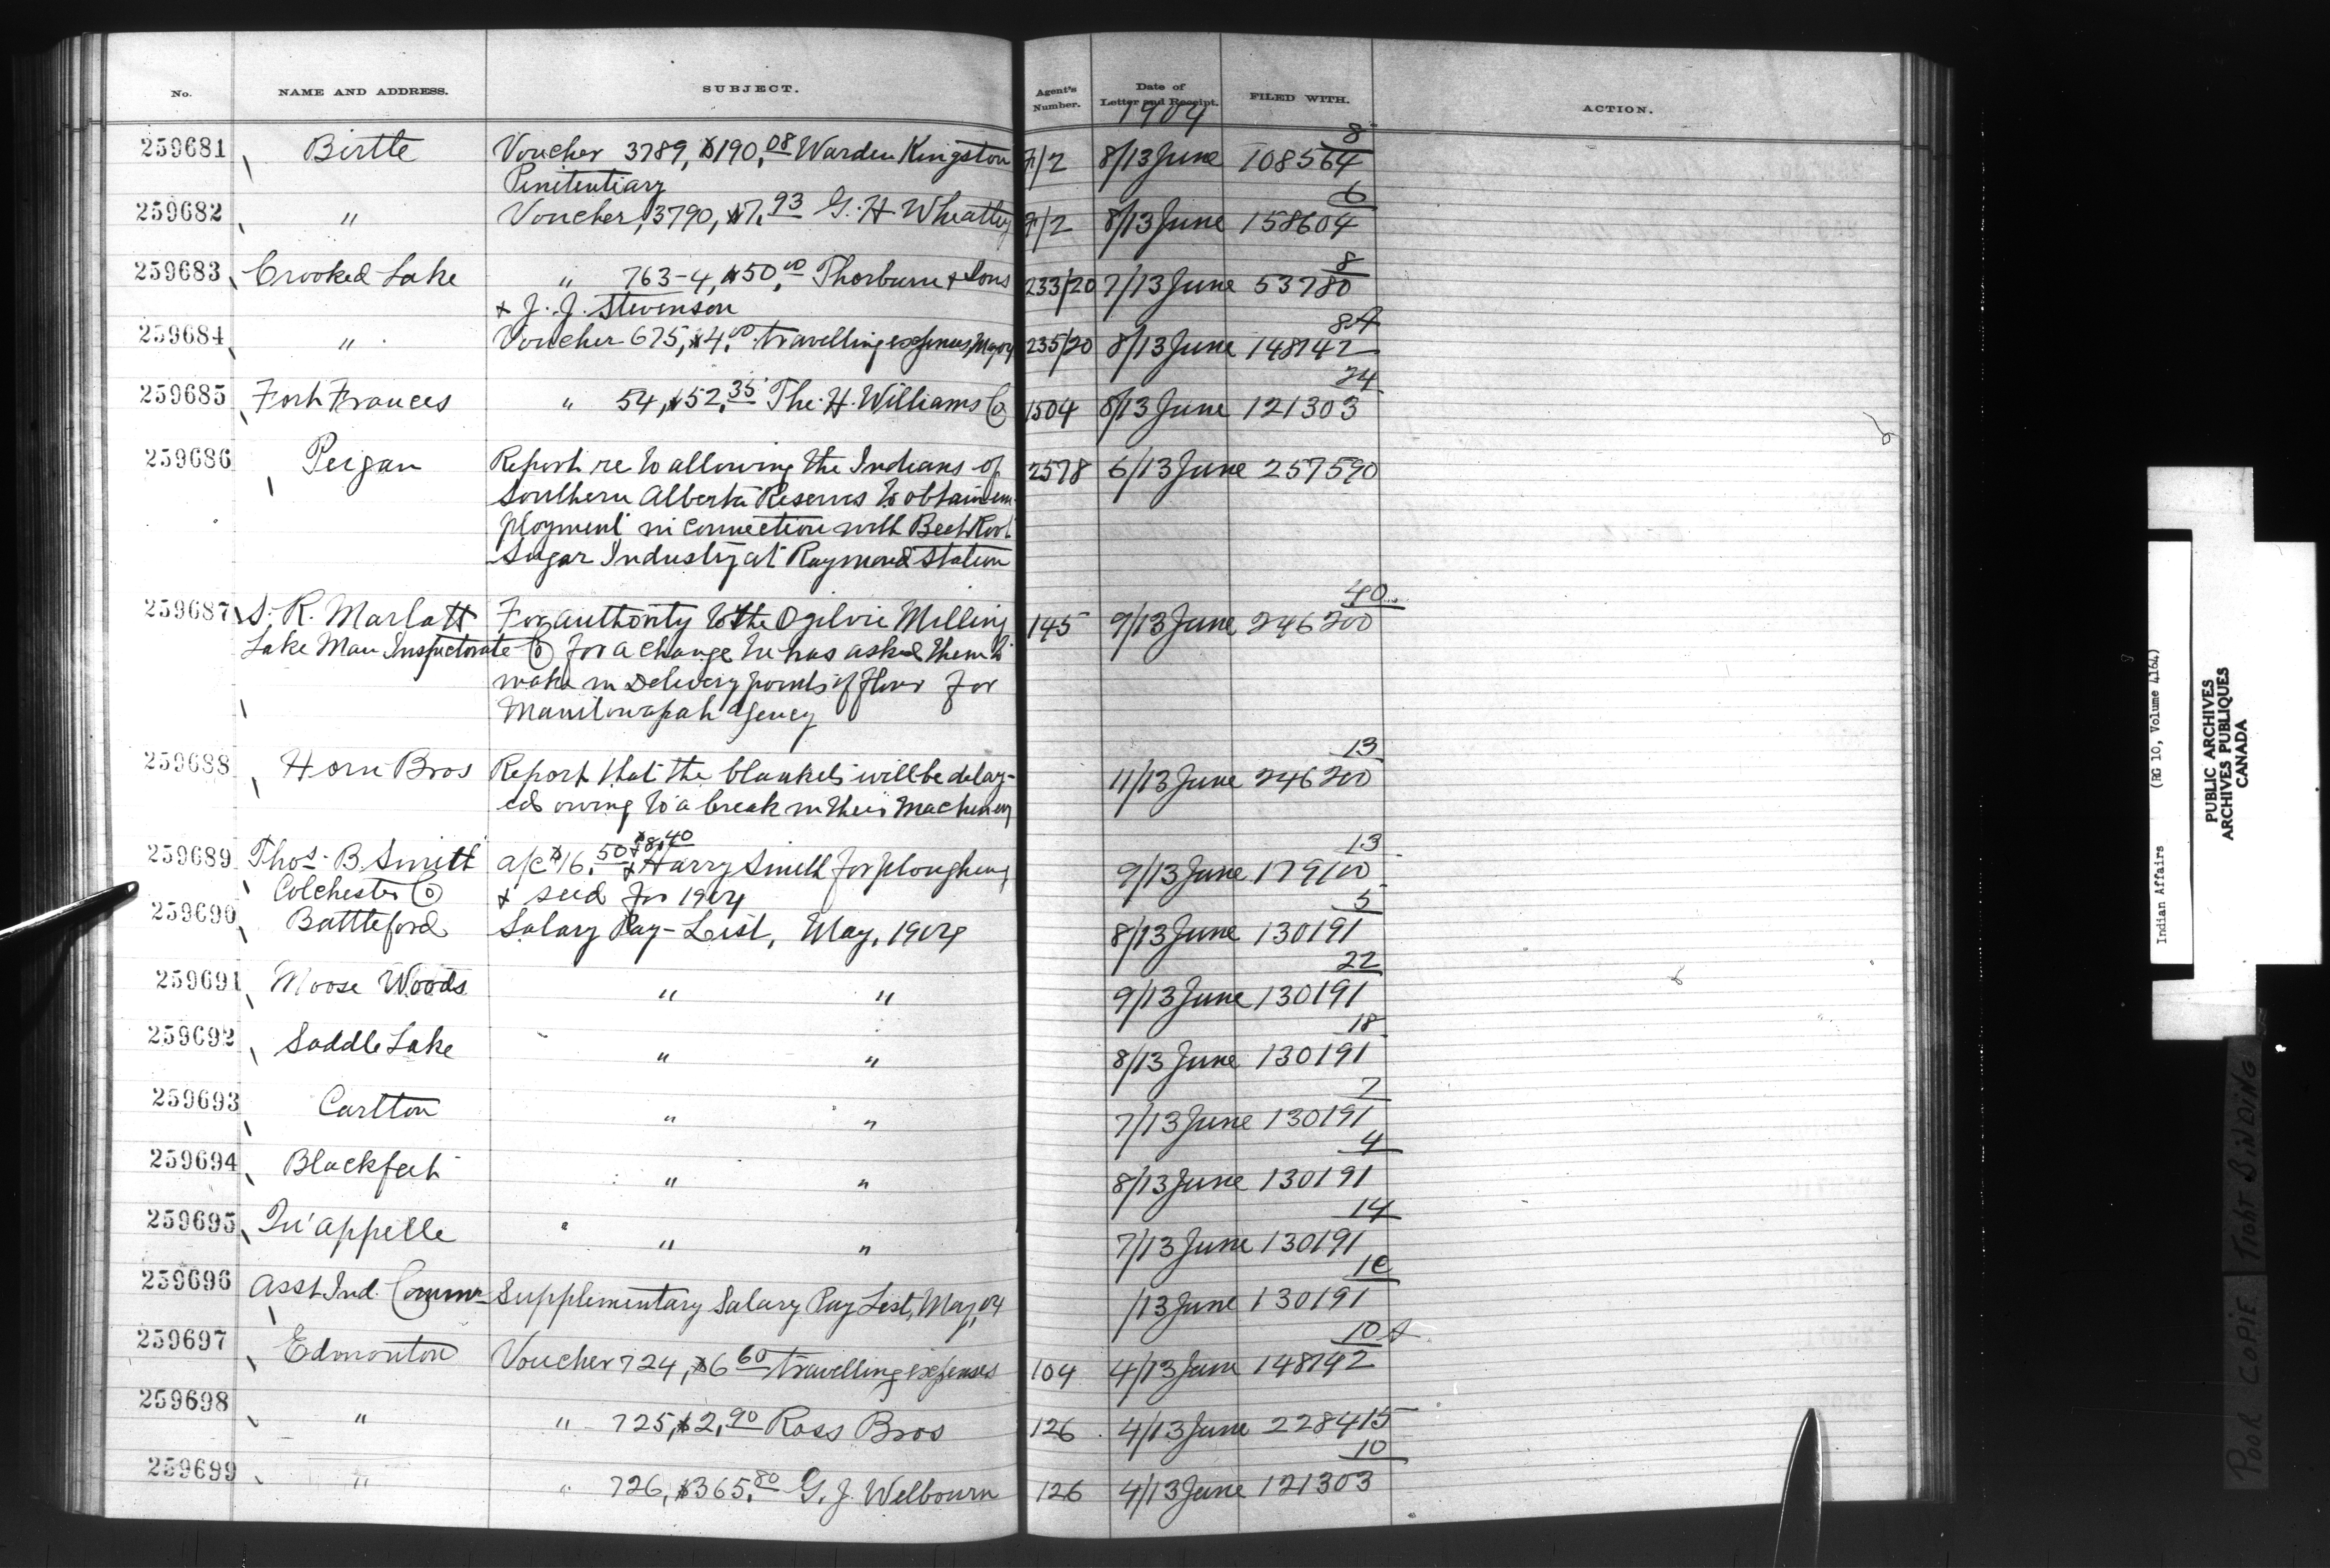 No. NAME AND ADDRESS. SUBJECT. Agent's Number. Date of Letter and Receipt. FILED WITH. ACTION.
1904
8
259681 Birtle Voucher 3789, $190.08 Warden Kingston 7/2 8/13 June 108564
Penitentiary
6
259682 " Voucher, 3790, $7.93 G. H. Wheatley 9/2 8/13 June 158604
8
259683 Crooked Lake " 763-4, $50.00 Thorburn & Sons 233/20 7/13 June 53780
& J. J. Stevenson
8A
259684 " Voucher 675, $4.00 travelling expenses, May 04 235/20 8/13 June 148742
24
259685 Fort Frances " 54, $52.35 The H. Williams Co 1504 8/13 June 121303
259686 Peigan Report re to allowing the Indians of 2578 6/13 June 257590
Southern Alberta Reserves to obtain em-
ployment in connection with Beet Root
Sugar Industry at Raymond Station
40
259687 S. R. Marlatt For authority to the Ogilvie Milling 145 9/13 June 246200
Lake Man Inspectorate Co for a change he has asked them to
make in delivery points of flour for
Manitowapah Agency
13
259688 Horn Bros Report that the blankets will be delay- 11/13 June 246200
ed owing to a break in their Machinery
$8.40 13
259689 Thos. B. Smith a/c $16.50 & Harry Smith for ploughing 9/13 June 179100
Colchester Co & seed for 1904
5
259690 Battleford Salary Pay-List, May, 1904 8/13 June 130191
22
259691 Moose Woods " " 9/13 June 130191
18
259692 Saddle Lake " " 8/13 June 130191
7
259693 Carlton " " 7/13 June 130191
4
259694 Blackfeet " " 8/13 June 130191
14
259695 Qu'appelle " " 7/13 June 130191
1C
259696 Asst Ind. Commr Supplimentary Salary Pay List, May, 04 /13 June 130191
10 A
259697 Edmonton Voucher 724, $6.60 travelling expenses 104 4/13 June 148742
259698 " " 725, $2.90 Ross Bros 126 4/13 June 228415
10
259699 " " 726, $365.80 G. J. Welbourn 126 4/13 June 121303
Indian Affairs (RG 10, Volume 4164)
PUBLIC ARCHIVES
ARCHIVES PUBLIQUES
CANADA
POOR COPIE TIGHT BINDING